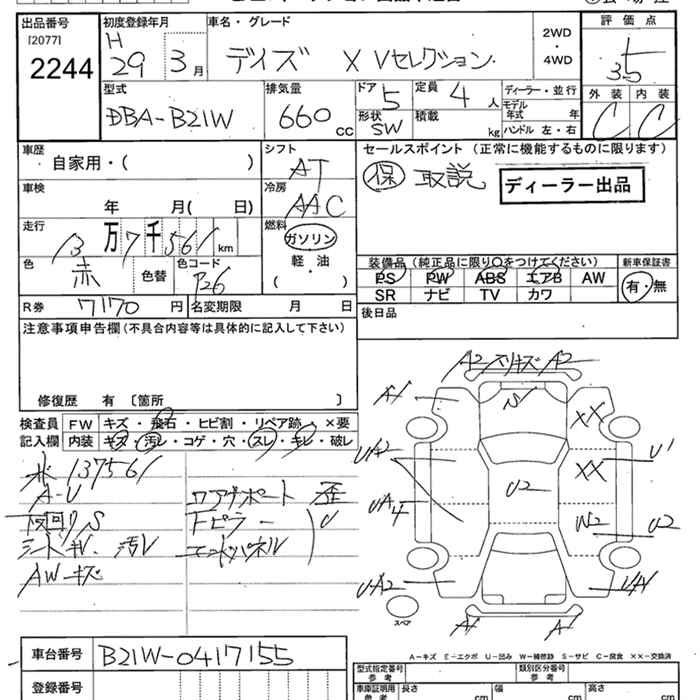 出品番号
[2077]
2244
初度登録年月
H
29 3月
車名・グレード
デイズ X Vセレクション
2WD
・
4WD
評価点
3.5
外装 内装
C C
型式
DBA-B21W
排気量
660 cc
ドア 5
形状 SW
定員 4 人
積載 kg
ディーラー・並行
モデル
年式 年
ハンドル 左・右
車歴
自家用・( )
シフト
AT
セールスポイント (正常に機能するものに限ります)
保 取説 ディーラー出品
車検
年 月( 日)
冷房
AAC
走行
13万7千561km
燃料
ガソリン
軽・油
( )
色
赤
色替
色コード
装備品 (純正品に限り○をつけてください)
新車保証書
PS PW ABS エアB AW
SR ナビ TV カワ
有・無
R券 7170円
名変期限 月 日
後日品
注意事項申告欄(不具合内容等は具体的に記入して下さい)
修復歴 有 〔箇所 〕
検査員
記入欄
FW キズ・飛石・ヒビ割・リペア跡・×要
内装 キズ・汚レ・コゲ・穴・スレ・キレ・破レ
137561
A-U
下回りS
シートキレ 汚レ
AWキズ
コアサポート 歪
Fピラー
エンドパネル
U
A2 スリキズ A2
A1
S
XX
UA2
XX
U1
U2
UA4
W2
U2
UA2
UA1
スペア
A1
A1
A-キズ E-エクボ U-凹み W-補修跡 S-サビ C-腐食 XX-交換済
車台番号 B21W-0417155
登録番号
型式指定番号
参考
類別区分番号
参考
車庫証明用
参考
長さ cm
幅 cm
高さ cm